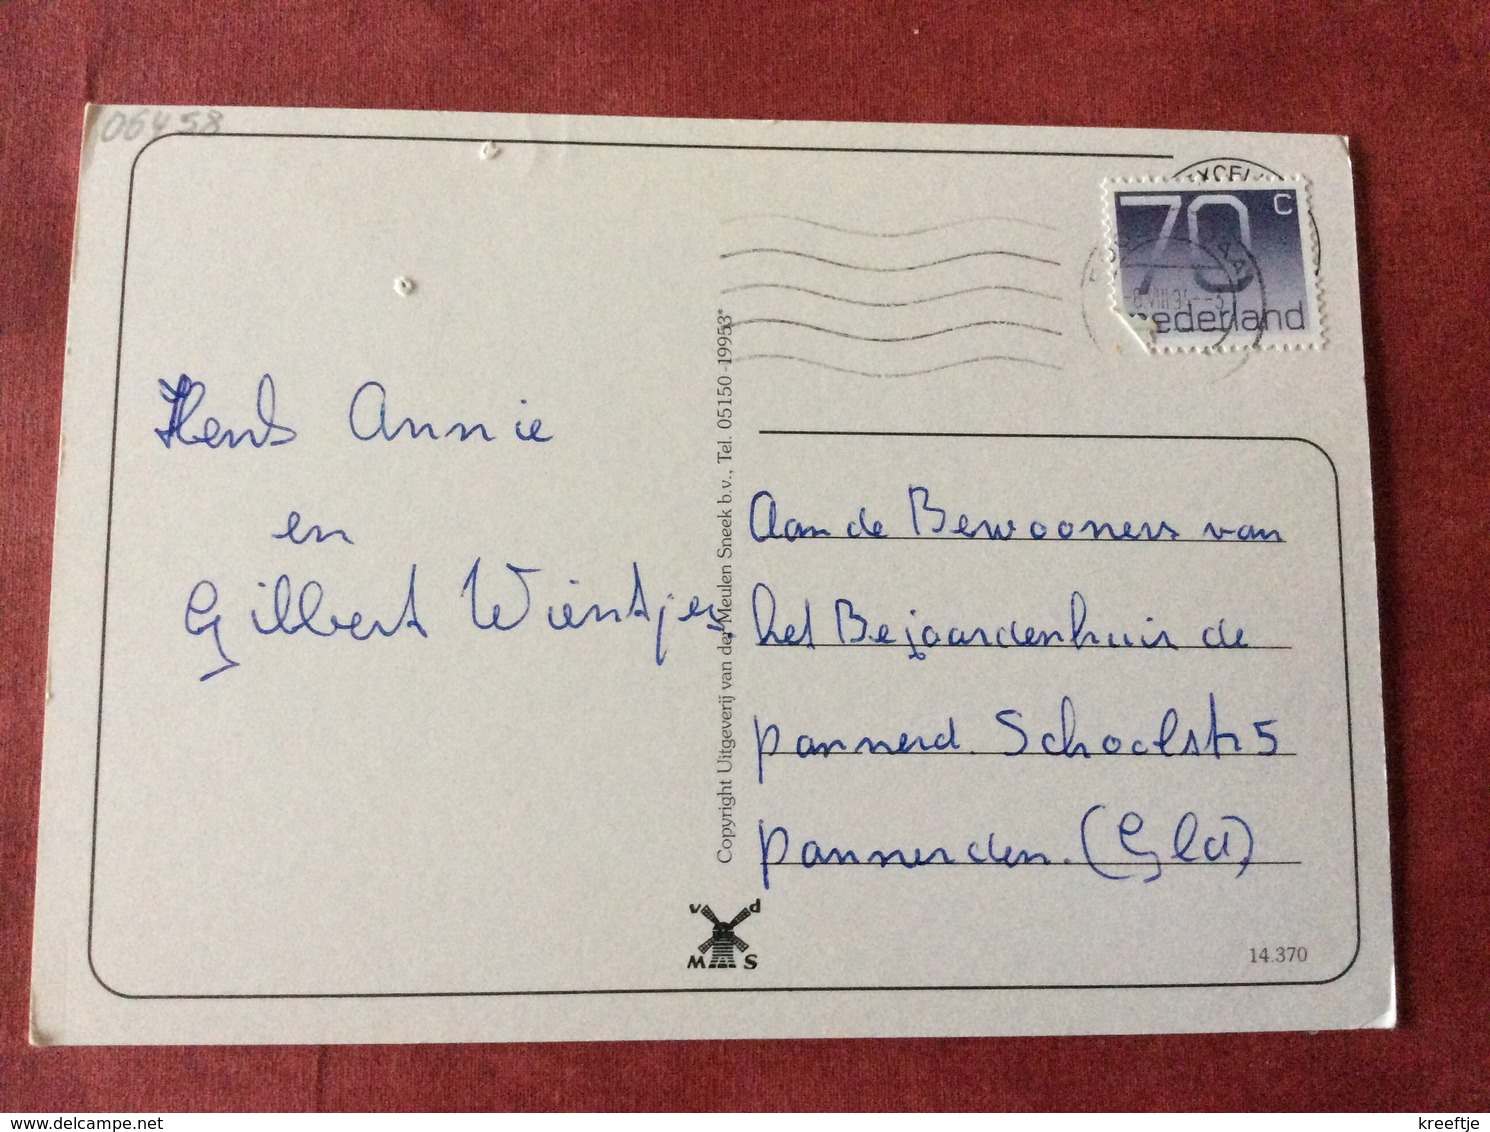 06458
70 c
nederland
Henk Annie
en
Gilbert Wientjes
Copyright Uitgeverij van der Meulen Sneek b.v., Tel. 05150-19953*
Aan de Bewooners van
het Bejaardenhuis de
pannerd. Schoolstr 5
pannerden. (Gld)
v d
M S
14.370
delcampe.net
kreeftje